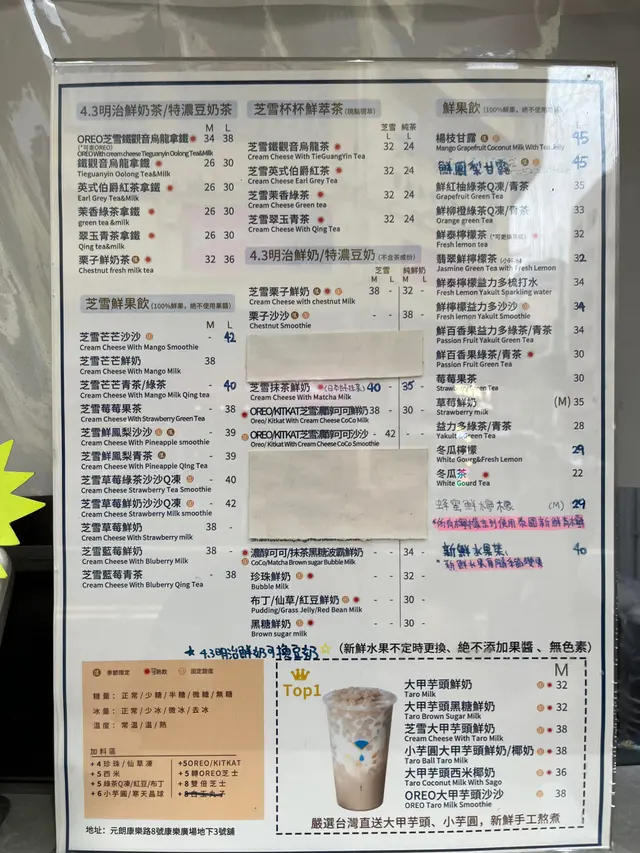 4.3明治鮮奶茶/特濃豆奶茶
M L
OREO芝雪鐵觀音烏龍拿鐵 34 38
(*可走OREO)
OREO with cream cheese Tieguanyin Oolong Tea&Milk
鐵觀音烏龍拿鐵 26 30
Tieguanyin Oolong Tea&Milk
英式伯爵紅茶拿鐵 26 30
Earl Grey Tea&Milk
茉香綠茶拿鐵 26 30
green tea&milk
翠玉青茶拿鐵 26 30
Qing tea&milk
栗子鮮奶茶 32 36
Chestnut fresh milk tea
芝雪鮮果飲 (100%鮮果，絕不使用果醬)
M L
芝雪芒芒沙沙 - 42
Cream Cheese With Mango Smoothie
芝雪芒芒鮮奶 38
Cream Cheese With Mango Milk
芝雪芒芒青茶/綠茶 - 40
Cream Cheese With Mango Milk Qing tea
芝雪莓莓果茶 - 38
Cream Cheese with Strawberry Green Tea
芝雪鮮鳳梨沙沙 - 39
Cream Cheese With Pineapple smoothie
芝雪鮮鳳梨青茶 - 39
Cream Cheese With Pineapple Qing Tea
芝雪草莓綠茶沙沙Q凍 - 40
Cream Cheese With Strawberry Tea Smoothie
芝雪草莓鮮奶沙沙Q凍 - 42
Cream Cheese With Strawberry Milk smoothie
芝雪草莓鮮奶 38 -
Cream Cheese With Strawberry milk
芝雪藍莓鮮奶 38 -
Cream Cheese With Bluberry Milk
芝雪藍莓青茶 - 38
Cream Cheese With Bluberry Qing Tea
芝雪杯杯鮮萃茶 (現點現萃)
芝雪 純茶
L L
芝雪鐵觀音烏龍茶 32 24
Cream Cheese With TieGuangYin Tea
芝雪英式伯爵紅茶 32 24
Cream Cheese Earl Grey Tea
芝雪茉香綠茶 32 24
Cream Cheese Green tea
芝雪翠玉青茶 32 24
Cream Cheese With Qing Tea
4.3明治鮮奶/特濃豆奶 (不含茶成份)
芝雪 純鮮奶
M L M L
芝雪栗子鮮奶 38 - 32 -
Cream Cheese with chestnut Milk
栗子沙沙 - - 38
Chestnut Smoothie
芝雪抹茶鮮奶 (日本好抹茶) 40 - 35 -
Cream Cheese With Matcha Milk
OREO/KITKAT芝雪濃醇可可鮮奶 38 - 30 -
Oreo/ Kitkat With Cream Cheese CoCo Milk
OREO/KITKAT芝雪濃醇可可沙沙 - 42 - -
Oreo/ Kitkat With Cream Cheese CoCo Smoothie
濃醇可可/抹茶黑糖波霸鮮奶 - - 34 -
CoCo/Matcha Brown sugar Bubble Milk
珍珠鮮奶 - - 32 -
Bubble Milk
布丁/仙草/紅豆鮮奶 - - 30 -
Pudding/Grass Jelly/Red Bean Milk
黑糖鮮奶 - - 30 -
Brown sugar milk
鮮果飲 (100%鮮果，絕不使用果醬)
楊枝甘露 45
Mango Grapefruit Coconut Milk With Tea Jelly
鮮鳳梨甘露 45
鮮紅柚綠茶Q凍/青茶 35
Grapefruit Green Tea
鮮柳橙綠茶Q凍/青茶 33
Orange Green tea
鮮泰檸檬茶 32
Fresh lemon tea
翡翠鮮檸檬茶 32
Jasmine Green Tea with Fresh Lemon
鮮泰檸檬益力多梳打水 34
Fresh lemon Yakult Sparkling water
鮮檸檬益力多沙沙 34
Fresh lemon Yakult Smoothie
鮮百香果益力多綠茶/青茶 34
Passion Fruit Yakult Green Tea
鮮百香果綠茶/青茶 30
Passion Fruit Green Tea
莓莓果茶 30
Green Tea
草莓鮮奶 (M) 35
Strawberry milk
益力多綠茶/青茶 28
Yakult Green Tea
冬瓜檸檬 29
White Gourg&Fresh Lemon
冬瓜茶 22
White Gourd Tea
蜂蜜鮮檸檬 (M) 29
*所有檸檬系列使用泰國新鮮青檸
新鮮水果茶 40
★4.3明治鮮奶可換豆奶☆ (新鮮水果不定時更換、絕不添加果醬、無色素)
季節限定 可熱飲 固定甜度
糖量：正常/少糖/半糖/微糖/無糖
冰量：正常/少冰/微冰/去冰
溫度：常溫/溫/熱
加料區
+4 珍珠/仙草凍 +5 OREO/KITKAT
+5 西米 +5 轉OREO芝士
+5 綠茶Q凍/紅豆/布丁 +8 雙倍芝士
+6 小芋圓/寒天晶球
地址：元朗康樂路8號康樂廣場地下3號舖
Top1
M
大甲芋頭鮮奶 32
Taro Milk
大甲芋頭黑糖鮮奶 32
Taro Brown Sugar Milk
芝雪大甲芋頭鮮奶 38
Cream Cheese With Taro Milk
小芋圓大甲芋頭鮮奶/椰奶 38
Taro Ball Taro Milk
大甲芋頭西米椰奶 36
Taro Coconut Milk With Sago
OREO大甲芋頭沙沙 38
OREO Taro Milk Smoothie
嚴選台灣直送大甲芋頭、小芋圓，新鮮手工熬煮